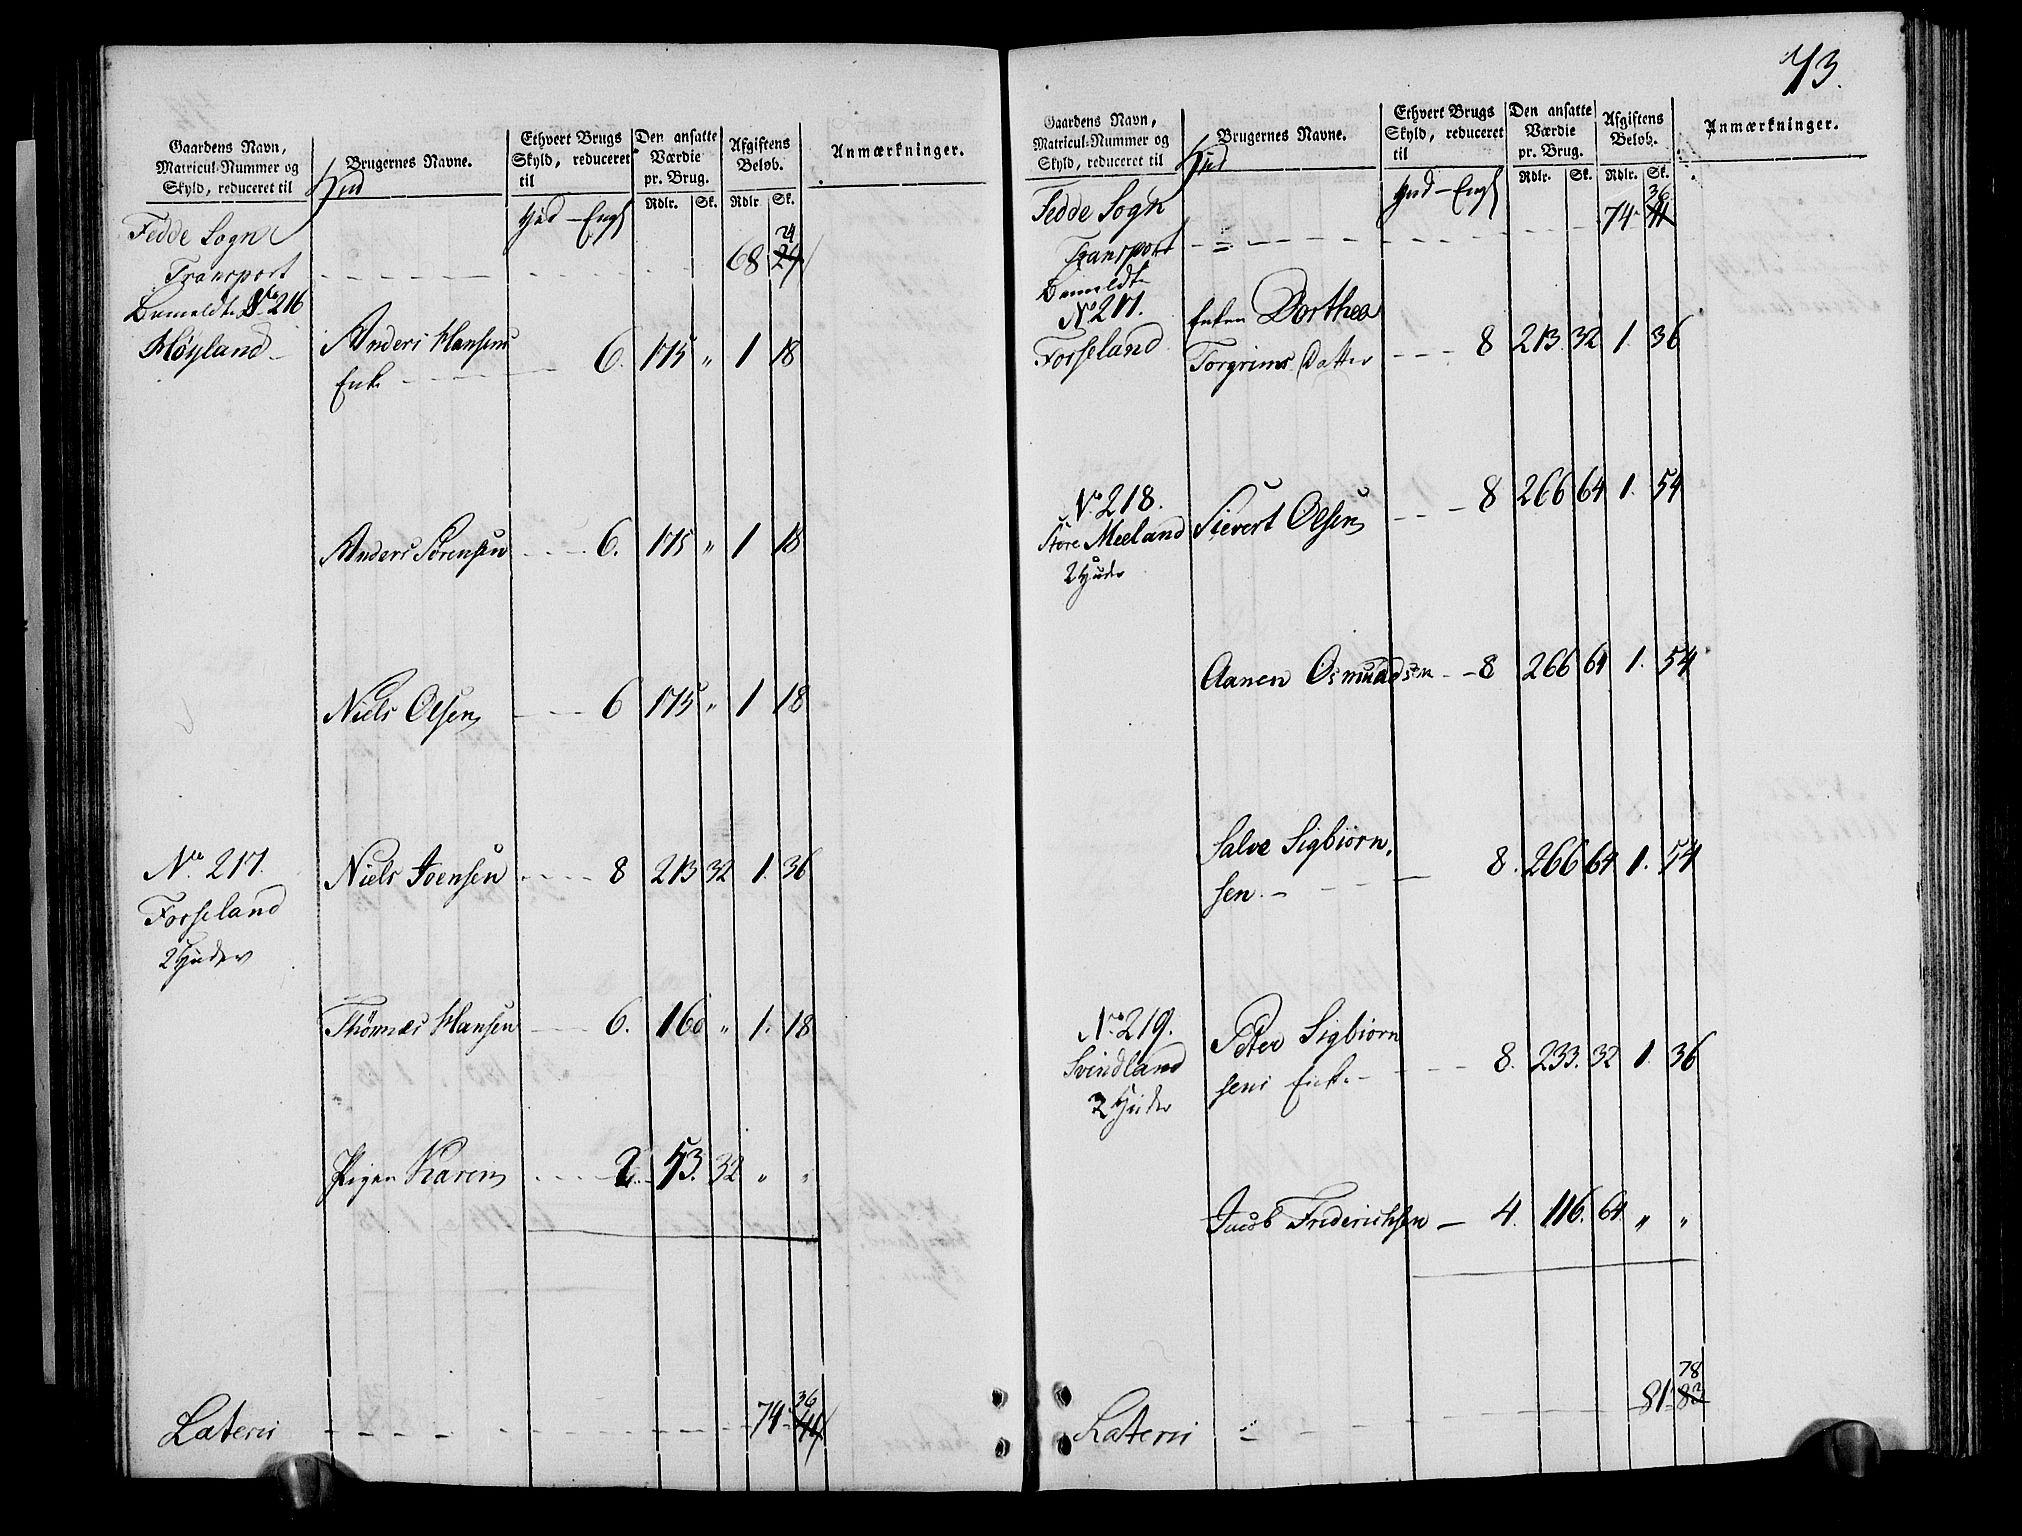 Gaardens Navn,
Matricul-Nummer og
Skyld, reduceret til
Hud
Brugernes Navne.
Ethvert Brugs
Skyld, reduceret
til
Hud – Engl
Den ansatte
Værdie
pr. Brug.
Rdlr. Sk.
Afgiftens
Beløb.
Rdlr Sk.
Anmærkninger.
Fedde Sogn
Transport - - - 68 24
Bemeldte No 216
Høyland
Anders Hansens
Enke - - - 6. 175 " 1 18
Anders Sørensen - - - 6. 175 " 1 18
Niels Olsen - - - 6 175 " 1 18
No. 217.
Forseland
2 Huder
Niels Joensen - - - 8 213 32 1. 36
Thønnes Hansen - - - 6. 160 " 1. 18
Pigen Karen - - - 2. 53. 32 " "
Lateris - - - 74 36
73.
Gaardens Navn,
Matricul-Nummer og
Skyld, reduceret til
Hud
Brugernes Navne.
Ethvert Brugs
Skyld, reduceret
til
Hud – Engl
Den ansatte
Værdie
pr. Brug.
Rdlr. Sk.
Afgiftens
Beløb.
Rdlr. Sk.
Anmærkninger.
Fedde Sogn
Transport - - - 74 36
Bemeldte
No 217.
Forseland
Enken Dorthea
Torgrims Datter - - - 8 213. 32 1. 36
No. 218.
Store Meeland
2 Huder
Sievert Olsen - - - 8 266 64 1. 54
Aanen Osmundsen - - 8 266 64 1. 54
Salve Sigbiørn,
sen. - - - 8. 266 64 1. 54
No. 219.
Svindland
2 Huder
Peter Sigbiørn
sens Enke - - - 8. 233. 32 1. 36
Jacob Friderichsen - 4. 116. 64 " "
Lateris - - - 81 78